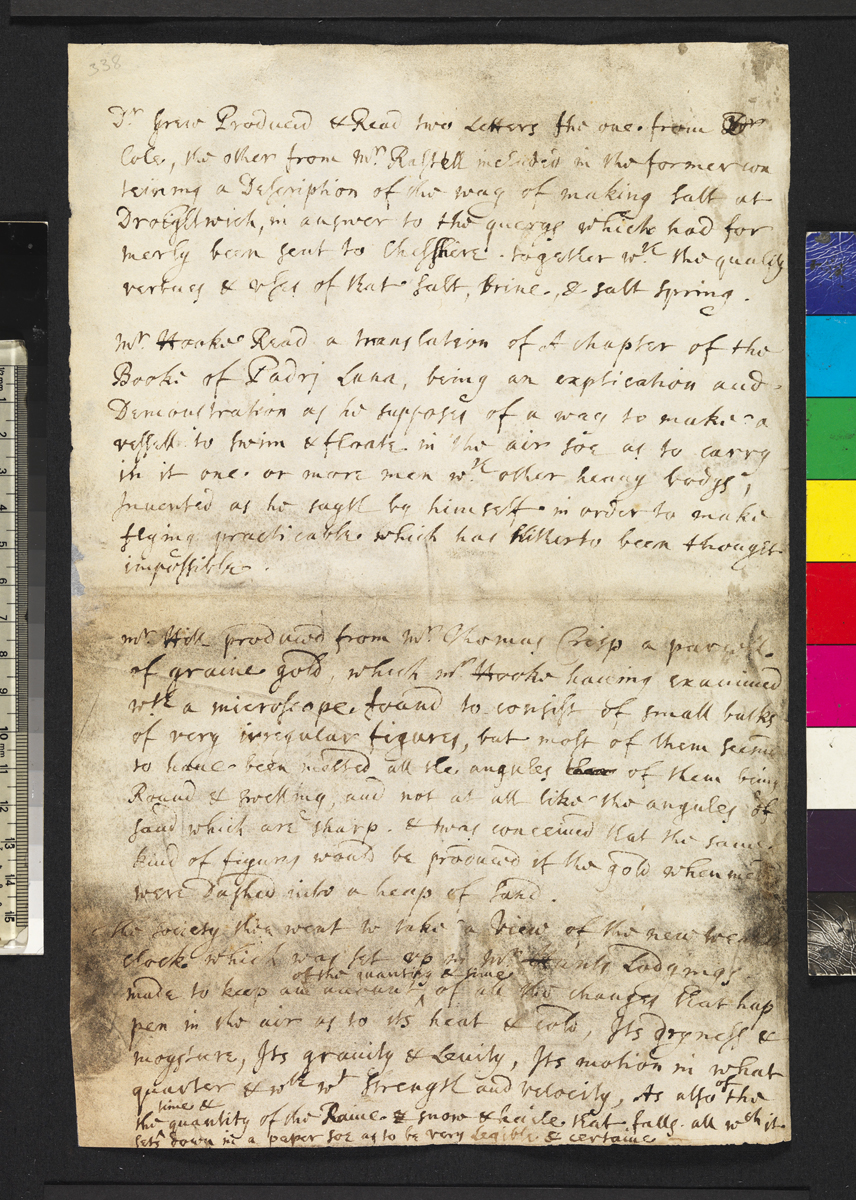 338
Dr Grew Produced & Read two Letters the one from Dor
Cole, the other from Mr Rastell included in the former con
teining a Description of the way of making salt at
Droightwich, in answer to the querys which had for
merly been sent to Chesshire. together wth the quality
vertues & uses of that salt, brine, & salt spring.
Mr Hooke Read a translation of A chapter of the
Booke of Padri Lana, being an explication and
Demonstration as he supposes of a way to make a
vessell to swim & floate in the air soe as to carry
in it one or more men wth other heavy bodys,
Invented as he sayth by himself in order to make
flying practicable which has hitherto been thought
impossible.
Mr Hill produced from Mr Thomas Crisp a parcell
of graine gold, which Mr Hooke having examined
wth a microscope found to consist of small bulks
of very irregular figures, but most of them seeme
to have been melted all the angules of them being
Round & swelling, and not at all like the angules of
sand which are sharp. & twas conceived that the same
kind of figures would be produced if the gold when
were Dashed into a heap of sand.
the society then went to take a View of the new
clock which was set up in Mr Hunts Lodgings
made to keep an account of the quantity & time of all the changes that hap
pen in the air as to its heat & cold, Its dryness &
moysture, Its gravity & Levity, Its motion in what
quarter & wth wt strength and velocity, As also of the
time &
the quantity of the Raine & snow & haile that falls. all wch it
sets down in a paper soe as to be very Legible & certaine